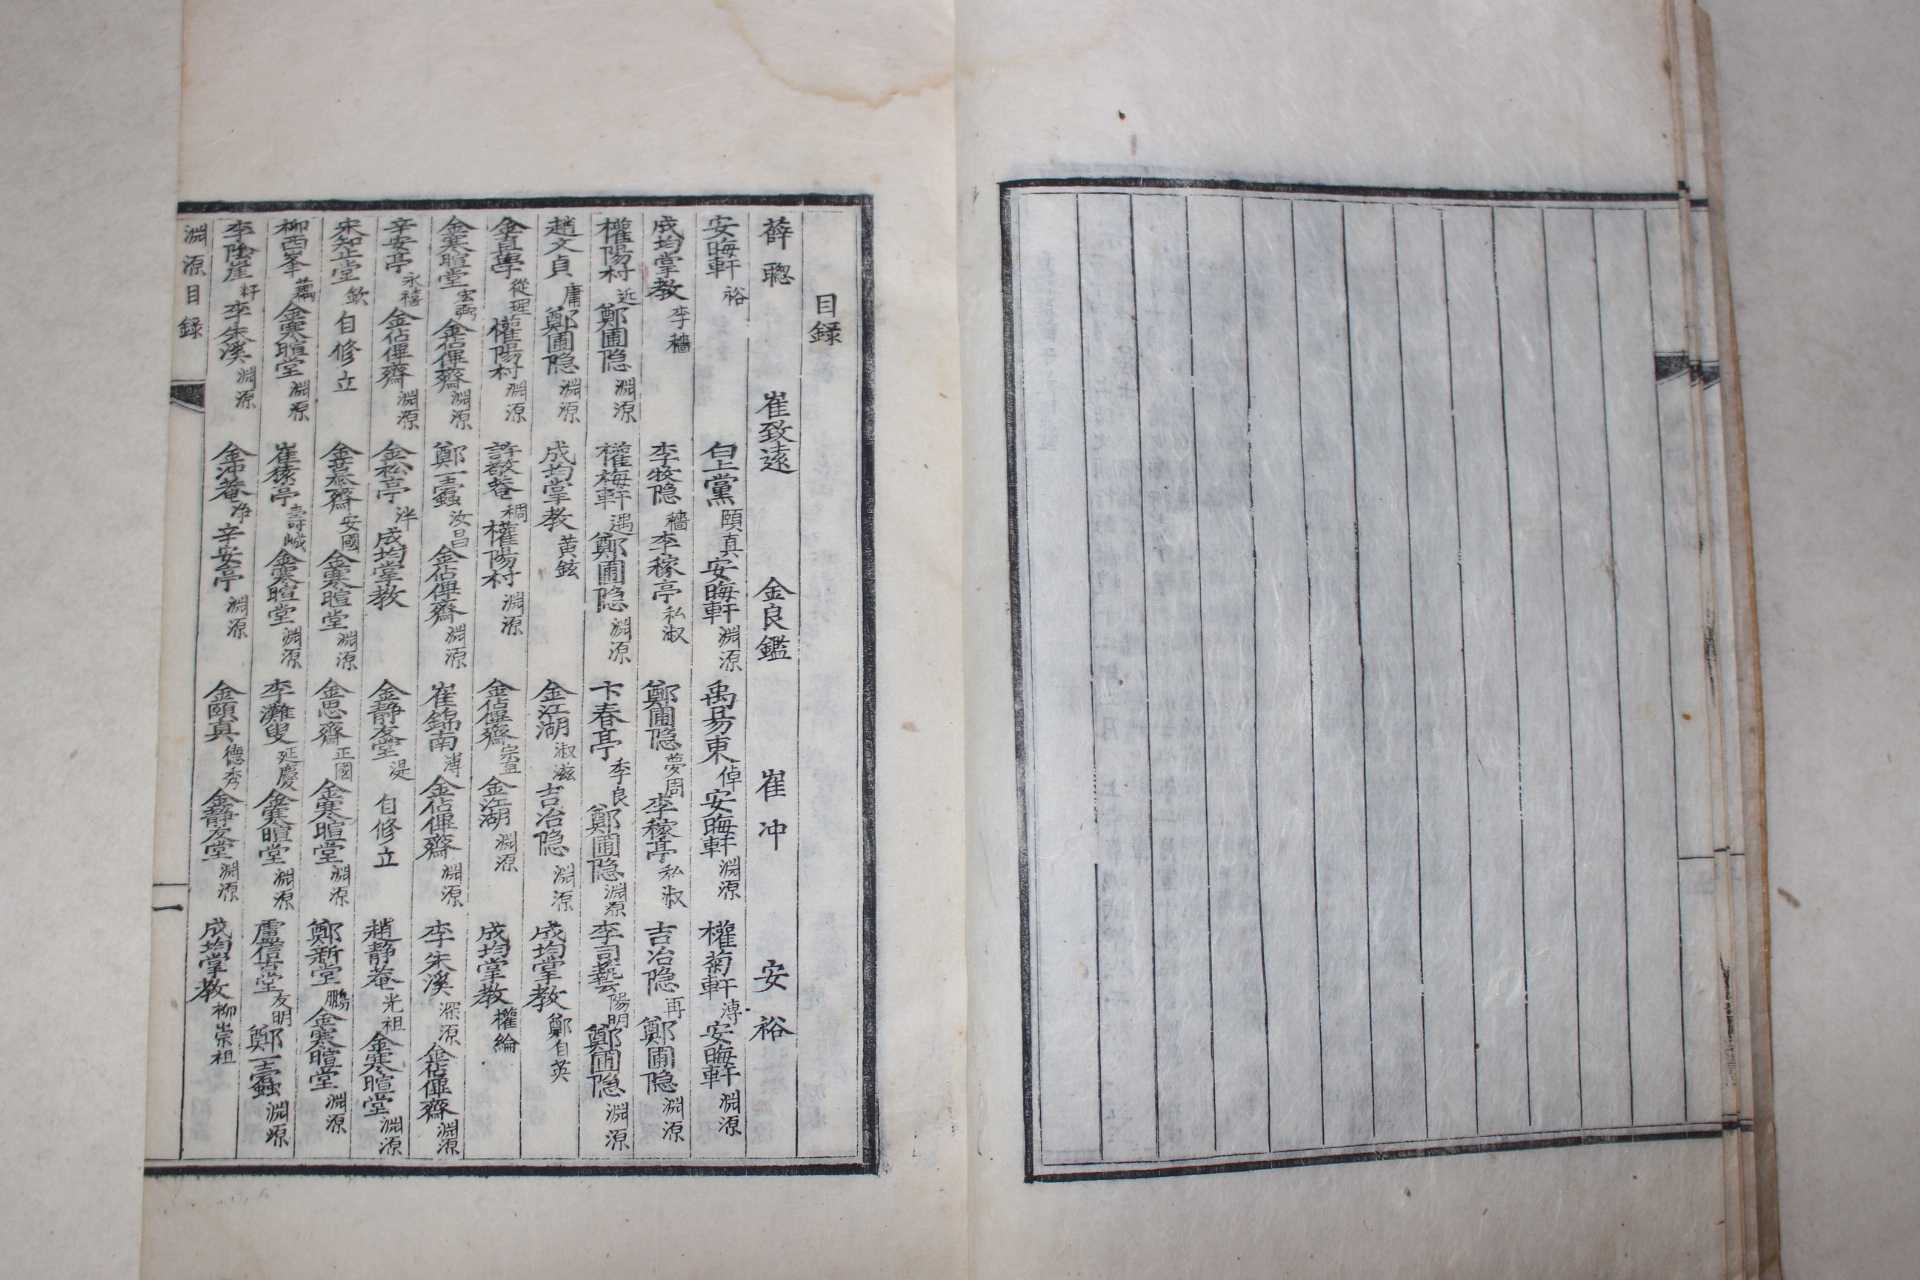 目録
薛聰 崔致遠 金良鑑 崔冲 安裕
安晦軒裕 白上黨頤真安晦軒淵源 禹易東倬安晦軒淵源 權菊軒溥安晦軒淵源
成均掌教李穡 李牧隐穡李稼亭私淑 鄭圃隐夢周李稼亭私淑 吉冶隐再鄭圃隐淵源
權陽村近鄭圃隐淵源 權梅軒遇鄭圃隐淵源 卞春亭季良鄭圃隐淵源 李司藝陽明鄭圃隐淵源
趙文貞庸鄭圃隐淵源 成均掌教黄鉉 金江湖淑滋吉冶隐淵源 成均掌教鄭自英
金直學從理權陽村淵源 許敬菴稠權陽村淵源 金佔僤齋宗直金江湖淵源 成均掌教權綸
金寒暄堂宏弼金佔僤齋淵源 鄭一蠹汝昌金佔僤齋淵源 崔錦南溥金佔僤齋淵源 李朱溪深源金佔僤齋淵源
辛安亭永禧金佔僤齋淵源 金松亭泮成均掌教 金静友堂湜自修立 趙静菴光祖金寒暄堂淵源
宋知止堂欽自修立 金慕齋安國金寒暄堂淵源 金思齋正國金寒暄堂淵源 鄭新堂鵬金寒暄堂淵源
柳西峯藕金寒暄堂淵源 崔猿亭壽峸金寒暄堂淵源 李灘叟延慶金寒暄堂淵源 盧信古堂友明鄭一蠹淵源
李陰崖耔李朱溪淵源 金冲菴净辛安亭淵源 金頤真德秀金静友堂淵源 成均掌教柳崇祖
淵源目録 一